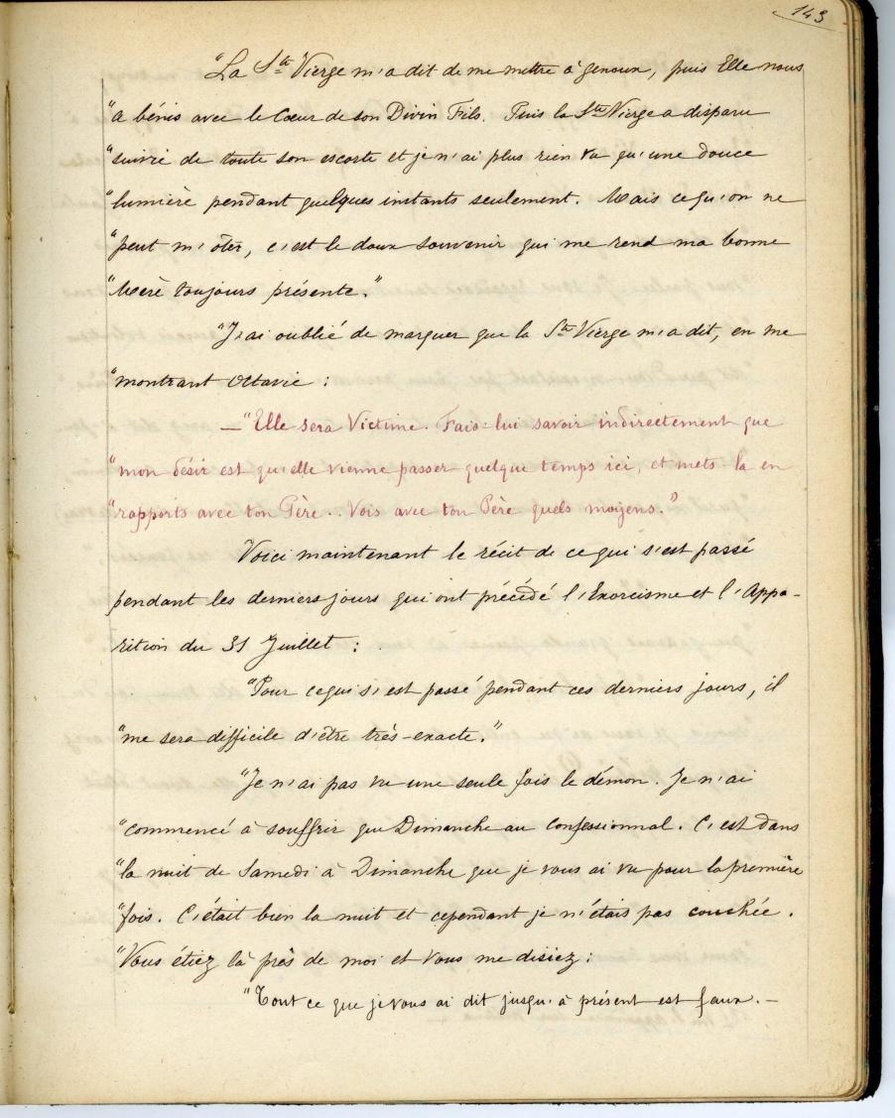 143
"La Ste Vierge m'a dit de me mettre à genoux, puis Elle nous
"a bénis avec le Cœur de son Divin Fils. Puis la Ste Vierge a disparu
"suivie de toute son escorte et je n'ai plus rien vu qu'une douce
"lumière pendant quelques instants seulement. Mais ce qu'on ne
"peut m'ôter, c'est le doux souvenir qui me rend ma bonne
"Mère toujours présente."
"J'ai oublié de marquer que la Ste Vierge m'a dit, en me
"montrant Octavie :
—"Elle sera Victime. Fais-lui savoir indirectement que
"mon désir est qu'elle vienne passer quelque temps ici, et mets-la en
"rapports avec ton Père.. Vois avec ton Père quels moyens."
Voici maintenant le récit de ce qui s'est passé
pendant les derniers jours qui ont précédé l'Exorcisme et l'Appa-
rition du 31 Juillet :
"Pour ce qui s'est passé pendant ces derniers jours, il
"me sera difficile d'être très-exacte."
"Je n'ai pas vu une seule fois le démon. Je n'ai
"commencé à souffrir que Dimanche au Confessionnal. C'est dans
"la nuit de Samedi à Dimanche que je vous ai vu pour la première
"fois. C'était bien la nuit et cependant je n'étais pas couchée.
"Vous étiez là près de moi et vous me disiez :
"Tout ce que je vous ai dit jusqu'à présent est faux. —